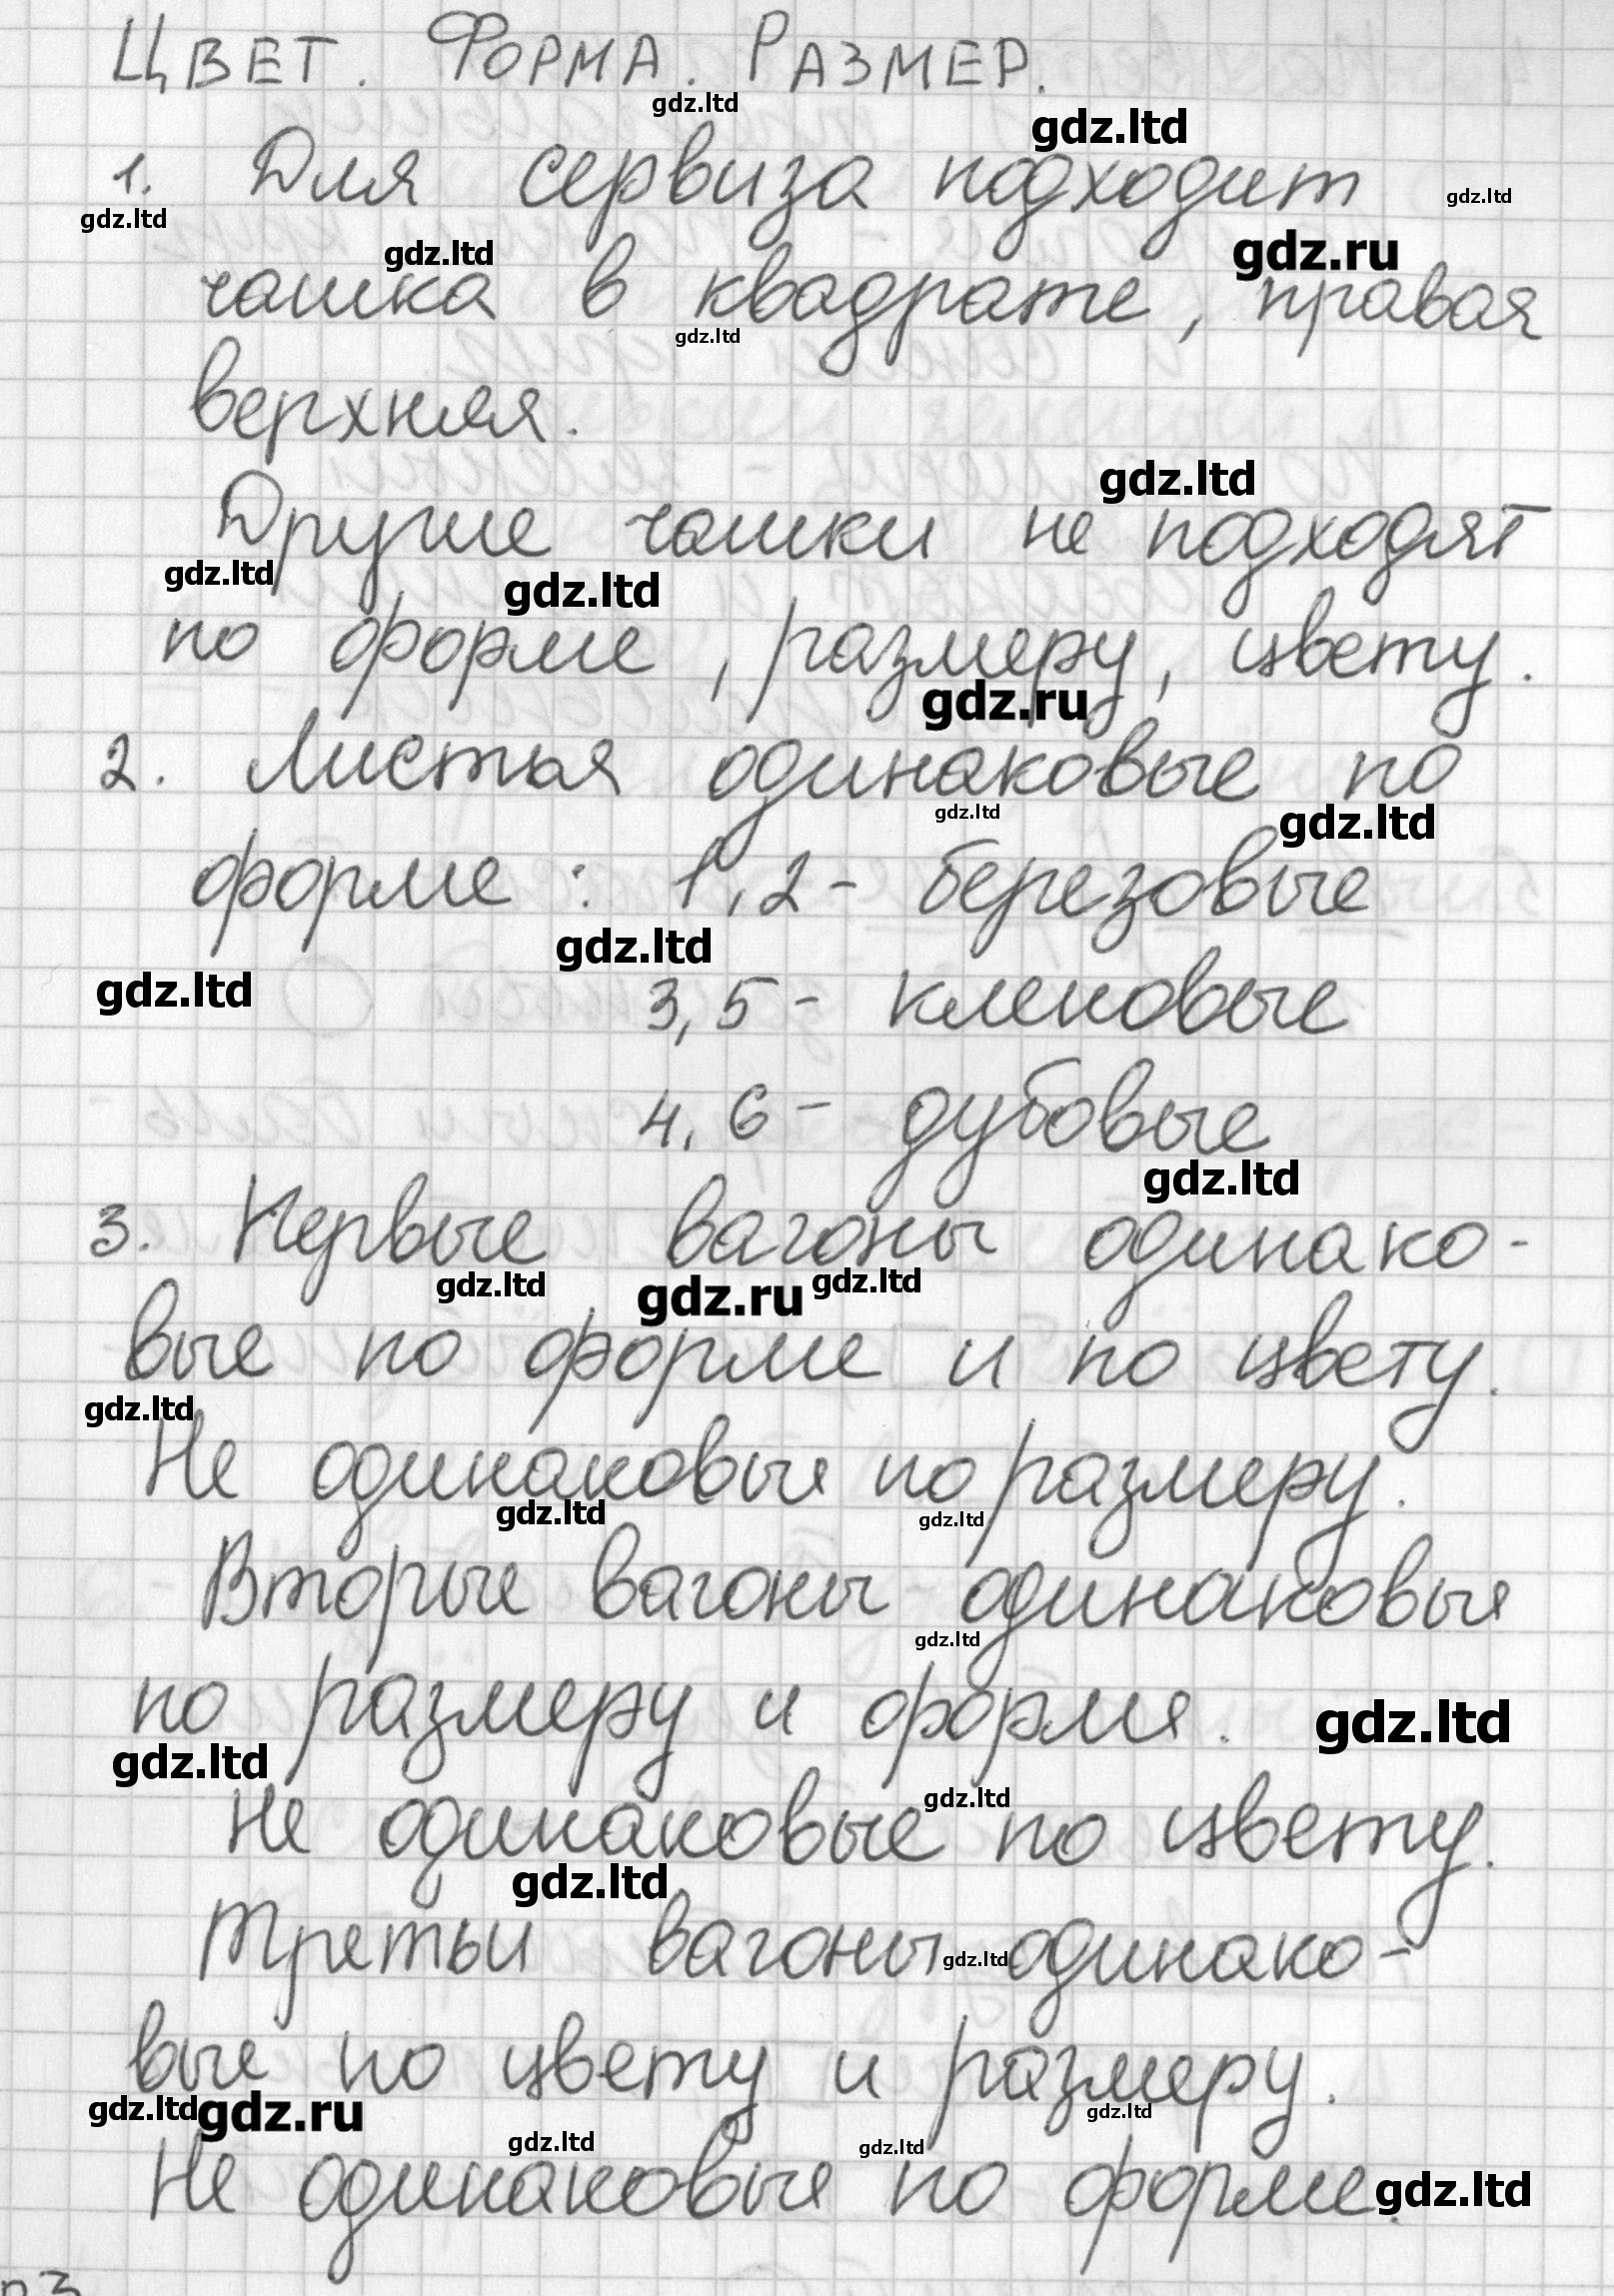 ЦВЕТ. ФОРМА. РАЗМЕР.
gdz.ltd gdz.ltd
1. Для сервиза подходит
gdz.ltd gdz.ltd
gdz.ltd gdz.ru
чашка в квадрате, правая
gdz.ltd
верхняя.
gdz.ltd
Другие чашки не подходят
gdz.ltd gdz.ltd
по форме, размеру, цвету.
gdz.ru
2. Листья одинаковые по
gdz.ltd gdz.ltd
форме: 1,2 - березовые
gdz.ltd
gdz.ltd
3,5 - кленовые
4,6 - дубовые
gdz.ltd
3. Первые вагоны одинако-
gdz.ltd gdz.ru gdz.ltd
вые по форме и по цвету.
gdz.ltd
Не одинаковые по размеру.
gdz.ltd gdz.ltd
Вторые вагоны одинаковые
gdz.ltd
по размеру и форме.
gdz.ltd
gdz.ltd
gdz.ltd
Не одинаковые по цвету.
gdz.ltd
Третьи вагоны одинако-
gdz.ltd
вые по цвету и размеру.
gdz.ltd gdz.ru gdz.ltd
gdz.ltd gdz.ltd
Не одинаковые по форме.
gdz.ltd